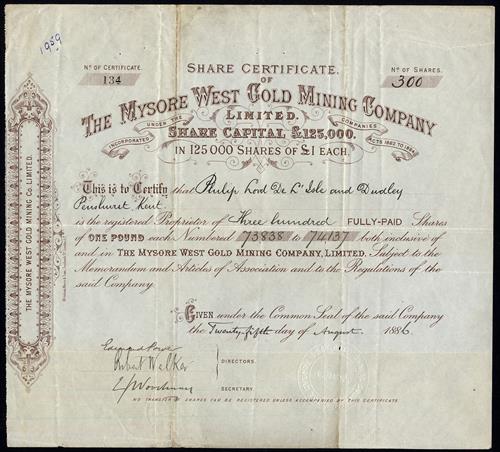 1989
Nº OF CERTIFICATE.
134
SHARE CERTIFICATE.
OF
Nº OF SHARES.
300
THE MYSORE WEST GOLD MINING COMPANY
LIMITED.
INCORPORATED UNDER THE COMPANIES ACTS 1862 TO 1883
SHARE CAPITAL £125,000.
IN 125000 SHARES OF £1 EACH.
This is to Certify that Philip Lord De L'Isle and Dudley
Penshurst Kent
is the registered Proprietor of Three hundred FULLY-PAID Shares
of ONE POUND each Numbered 73838 to 74137 both inclusive of
and in THE MYSORE WEST GOLD MINING COMPANY, LIMITED. Subject to the
Memorandum and Articles of Association and to the Regulations of the
said Company.
GIVEN under the Common Seal of the said Company
the Twenty fifth day of August 1886
Robert Walker
DIRECTORS.
SECRETARY
NO TRANSFER OF SHARES CAN BE REGISTERED UNLESS ACCOMPANIED BY THIS CERTIFICATE
THE MYSORE WEST GOLD MINING CO. LIMITED.